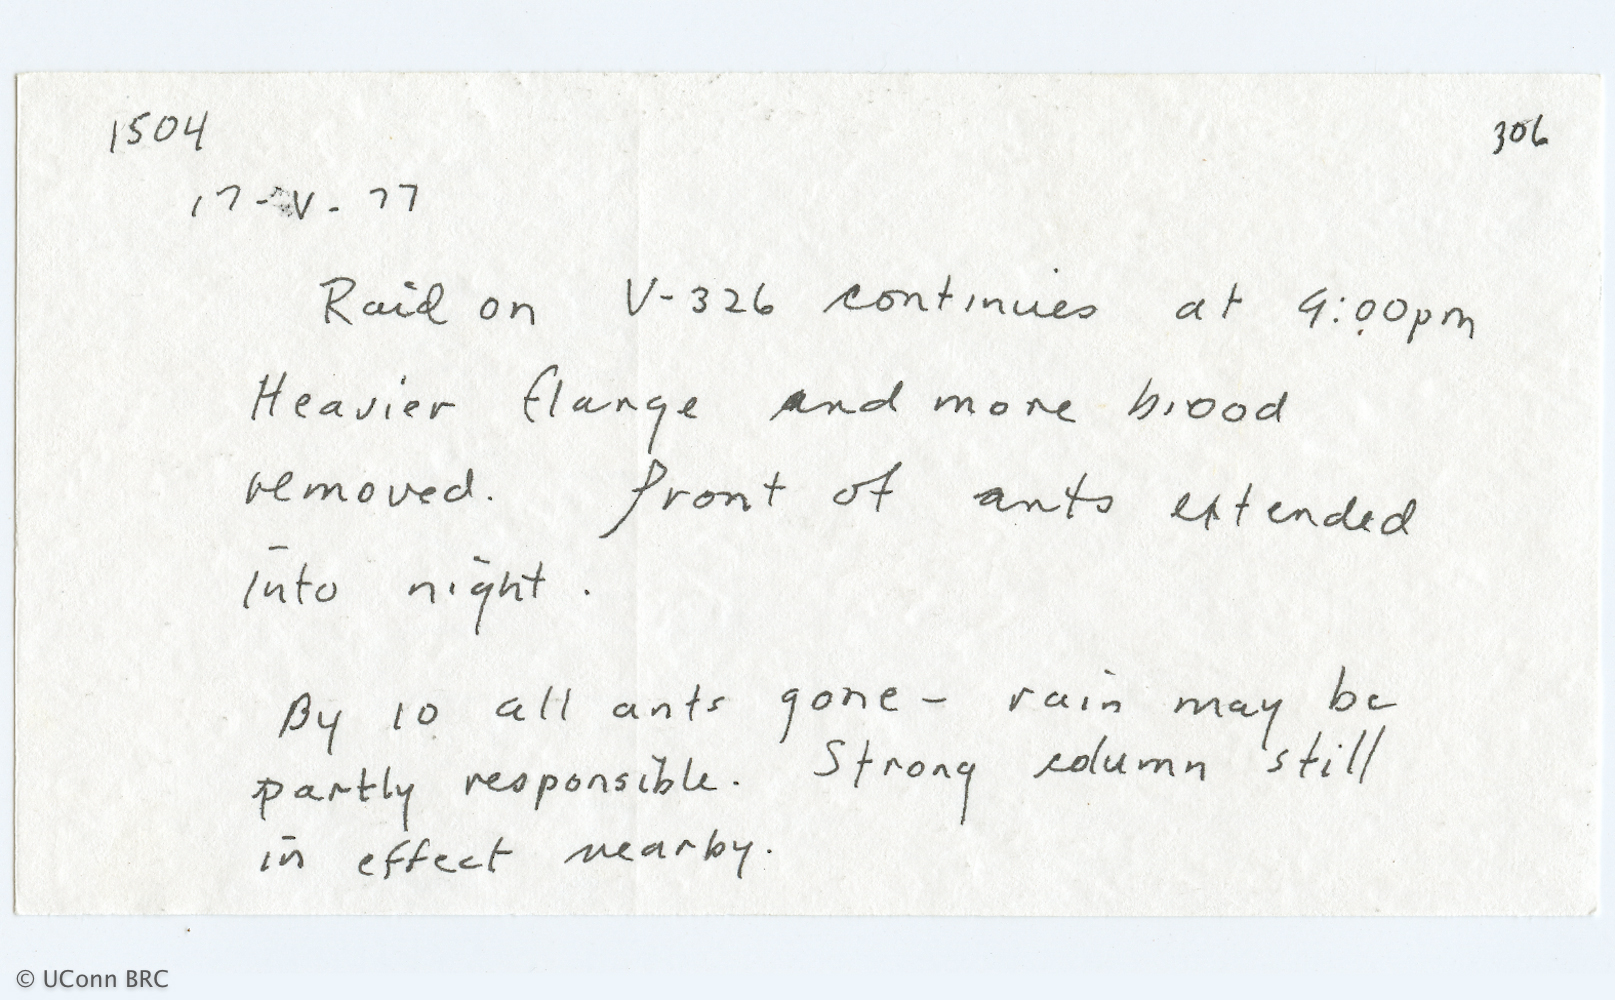 1504
306
17-V-77
Raid on V-326 continues at 9:00pm
Heavier flange and more brood
removed. front of ants extended
into night.
By 10 all ants gone - rain may be
partly responsible. Strong column still
in effect nearby.
© UConn BRC